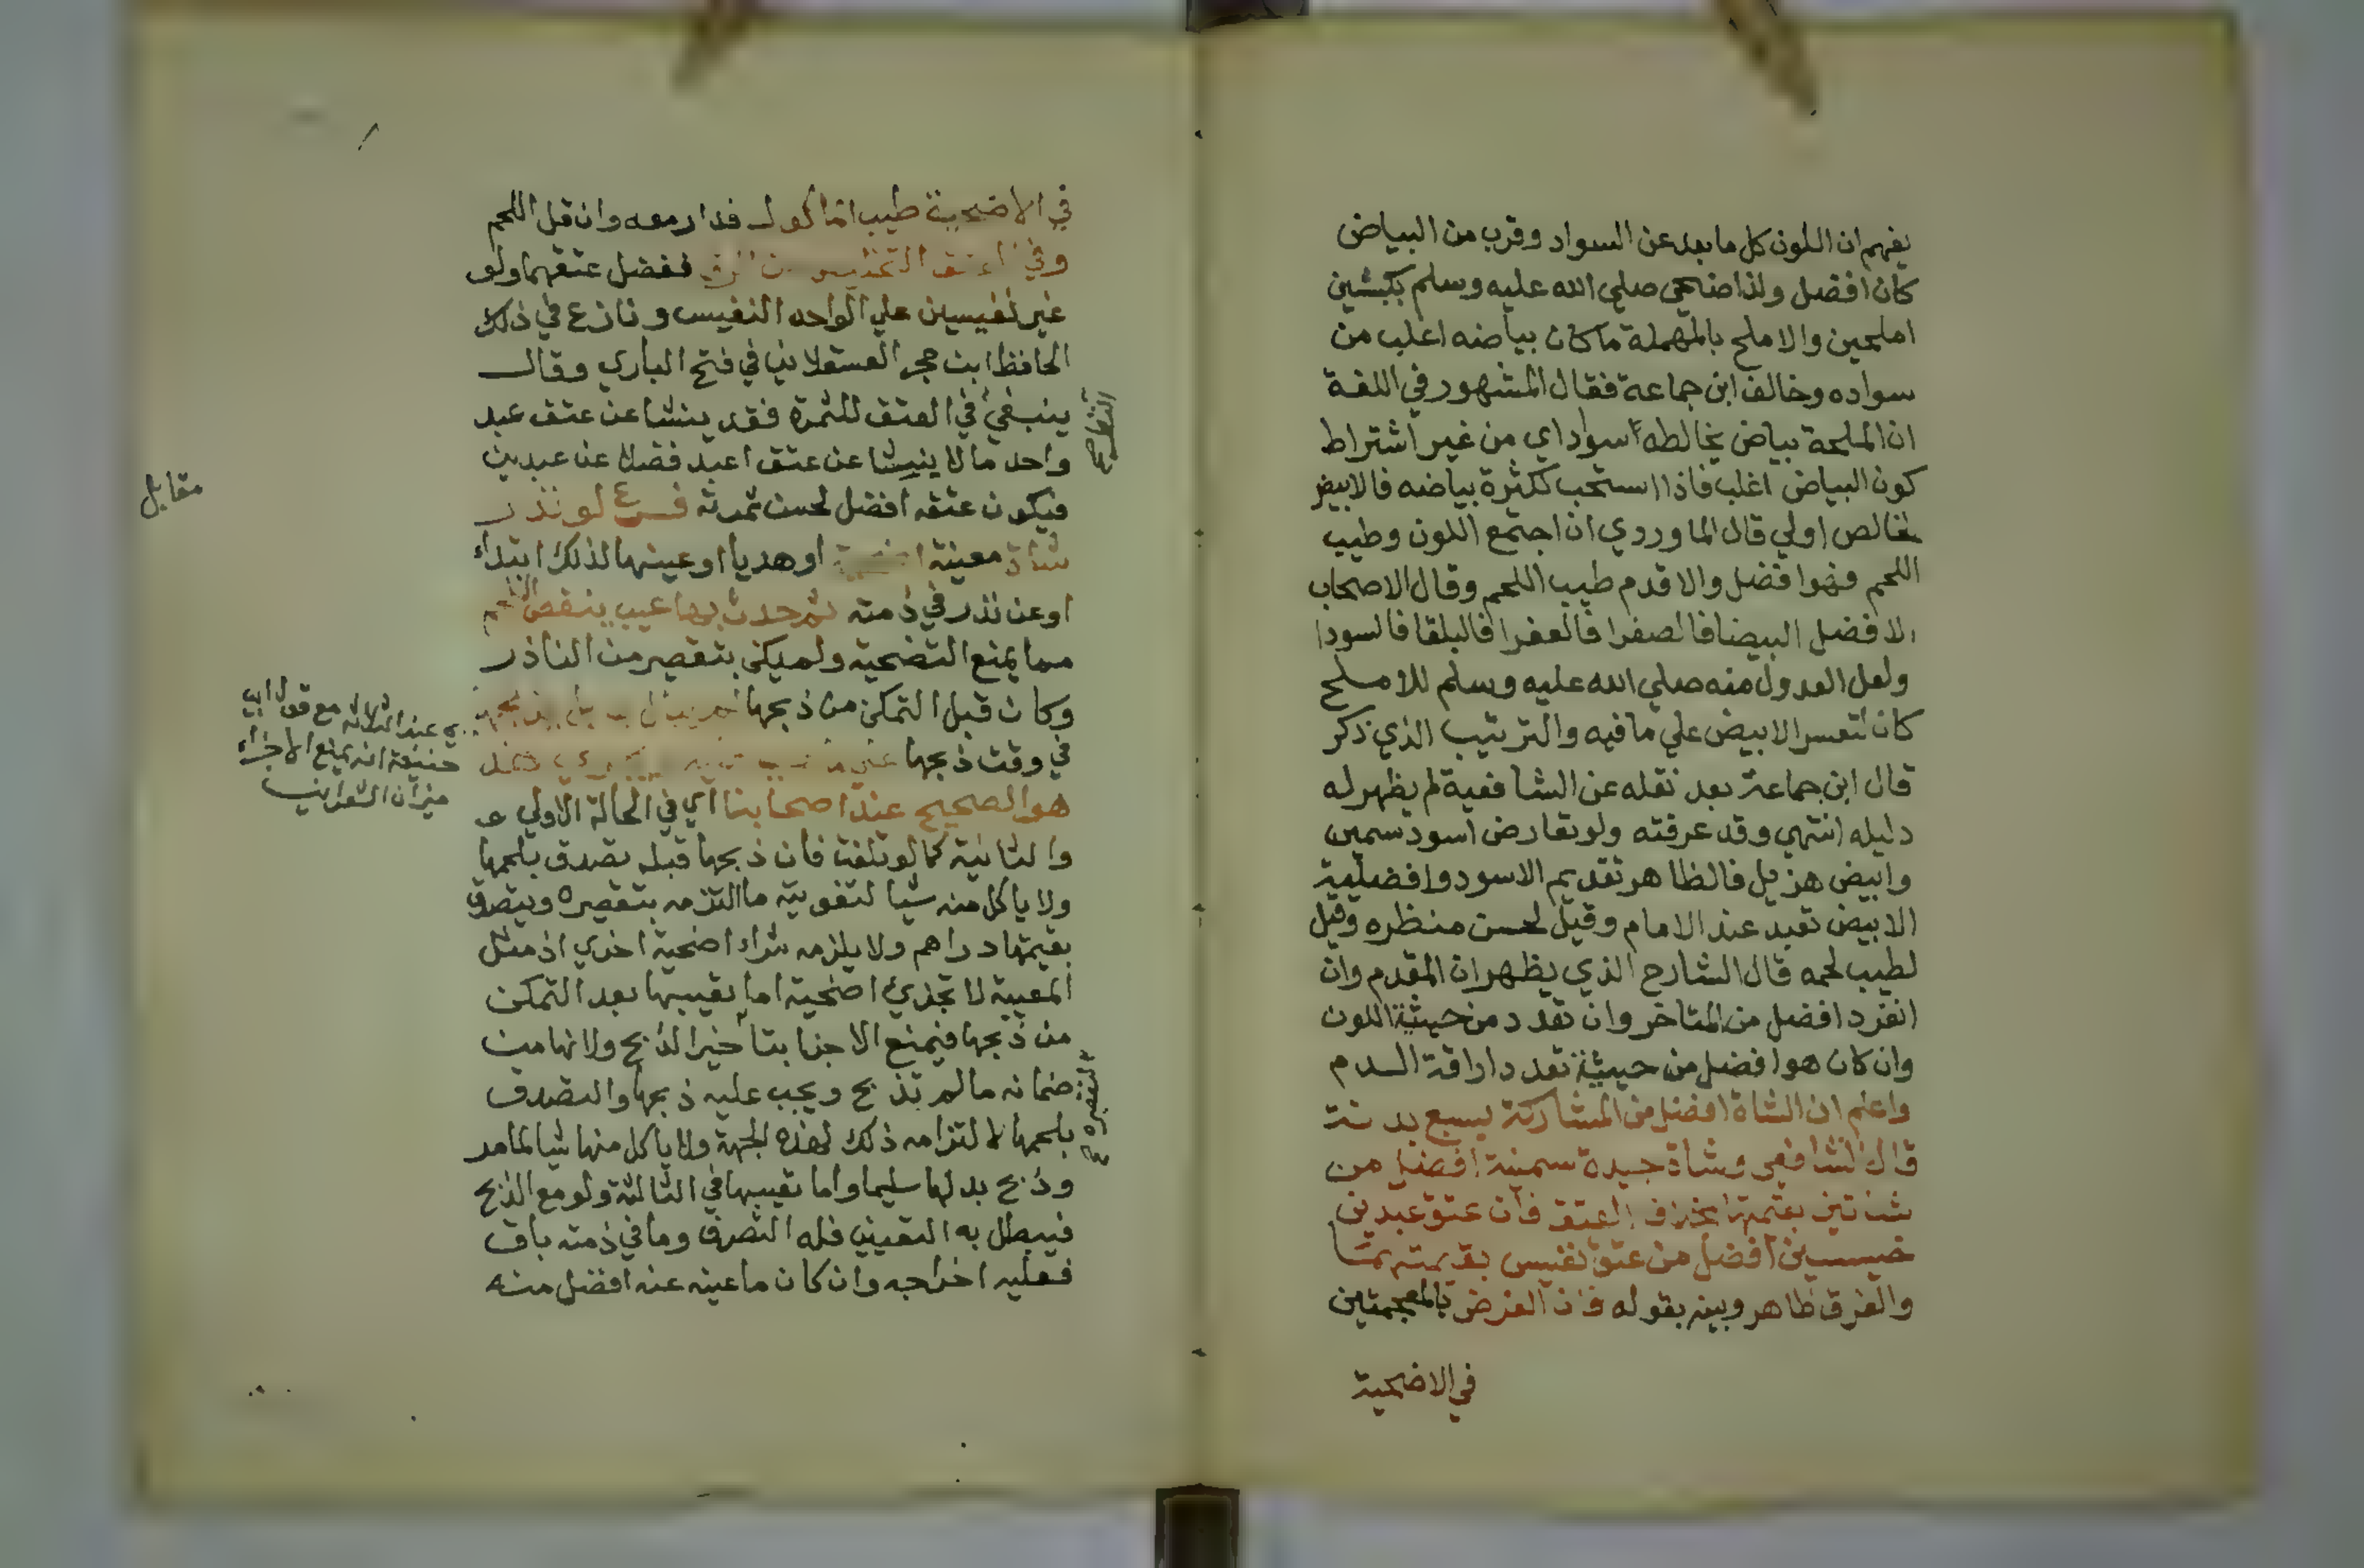 يفهم ان اللون كل ما بعد عن السواد وقرب من البياض
كان افضل ولذا ضحى صلي الله عليه وسلم بكبشين
املحين والاملح بالمهملة ما كان بياضه اغلب من
سواده وخالف ابن جماعة فقال المشهور في اللغة
ان الملحة بياض يخالطه سواد اي من غير اشتراط
كون البياض اغلب فاذا استحب لكثرة بياضه فالابيض
الخالص اولي قال الماوردي ان اجتمع اللون وطيب
اللحم فهو افضل والا قدم طيب اللحم وقال الاصحاب
الافضل البيضا فالصفرا فالعفرا فالبلقا فالسودا
ولعل العدول منه صلي الله عليه وسلم للاملح
كان لتعسر الابيض علي ما فيه والترتيب الذي ذكر
قال ابن جماعة بعد نقله عن الشافعية لم يظهر له
دليله انتهي وقد عرفته ولو تعارض اسود سمين
وابيض هزيل فالظاهر تقديم الاسود وافضلية
الابيض تعبد عند الامام وقيل لحسن منظره وقيل
لطيب لحمه قال الشارح الذي يظهر ان المقدم وان
انفرد افضل من المتاخر وان تعدد من حيثية اللون
وان كان هو افضل من حيثية تعدد اراقة الدم
واعلم ان الشاة افضل من المشاركة بسبع بدنة
قال الشافعي وشاة جيدة سمينة افضل من
شاتين بقيمتها بخلاف العتق فان عتق عبدين
خسيسين افضل من عتق نفيس بقيمتهما
والفرق ظاهر وبينه بقوله فان الغرض بالمعجمتين
في الاضحية
في الاضحية طيب الماكول فدار معه وان قل اللحم
وفي العتق التخليص من الرق ففضل عتقهما ولو
غير نفيسين علي الواحد النفيس ونازع في ذلك
الحافظ ابن حجر العسقلاني في فتح الباري وقال
ينبغي في العتق للثمرة فقد ينشا عن عتق عبد
واحد ما لا ينشا عن عتق اعبد فضلا عن عبدين
فيكون عتقه افضل لحسن ثمرته فرع لو نذر
شاة معينة او هديا او عينها لذلك ابتداء
او عن نذر في ذمته ثم حدث بها عيب ينقص اللحم
مما يمنع التضحية ولم يكن بتقصير من الناذر
وكان قبل التمكن من ذبحها
في وقت ذبحها
هو الصحيح عند اصحابنا اي في الحالة الاولي
والثانية كما لو تلفت فان ذبحها قبله تصدق بلحمها
ولا ياكل منه شيا لتفويته ما التزمه بتقصيره ويتصدق
بقيمتها دراهم ولا يلزمه شراء اضحية اخري اذ مثل
المعيبة لا تجزئ اضحية اما تعيبها بعد التمكن
من ذبحها فيمنع الاجزا بتاخير الذبح ولانها من
ضمانه ما لم تذبح ويجب عليه ذبحها والتصدق
بلحمها لالتزامه ذلك لهذه الجهة ولا ياكل منها شيا لما مر
وذبح بدلها سليما واما تعيبها في الثالثة ولو مع الذبح
فيبطل به التعيين فله التصرف وما في ذمته باق
فعليه اخراجه وان كان ما عينه عنه افضل منه
مقابل
عند الثلاثة مع قول ابي
حنيفة انه يمنع الاجزاء
ميزان الشعراني
لتقصيره صح